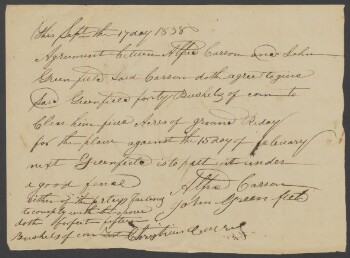 This Sept the 17 day 1838
Agreement between Alfred Carson and John
Greenfield Said Carson doth agree to give
Said Greenfield forty Bushels of corn to
Clear him five Acres of ground Ready
for the plow against the 15 day of february
next Greenfield is to put it under
a good fence
Alfred Carson
John Greenfield
Either of the partys failing
to comply with the above
doth forfeit fifteen
Bushels of corn Christian